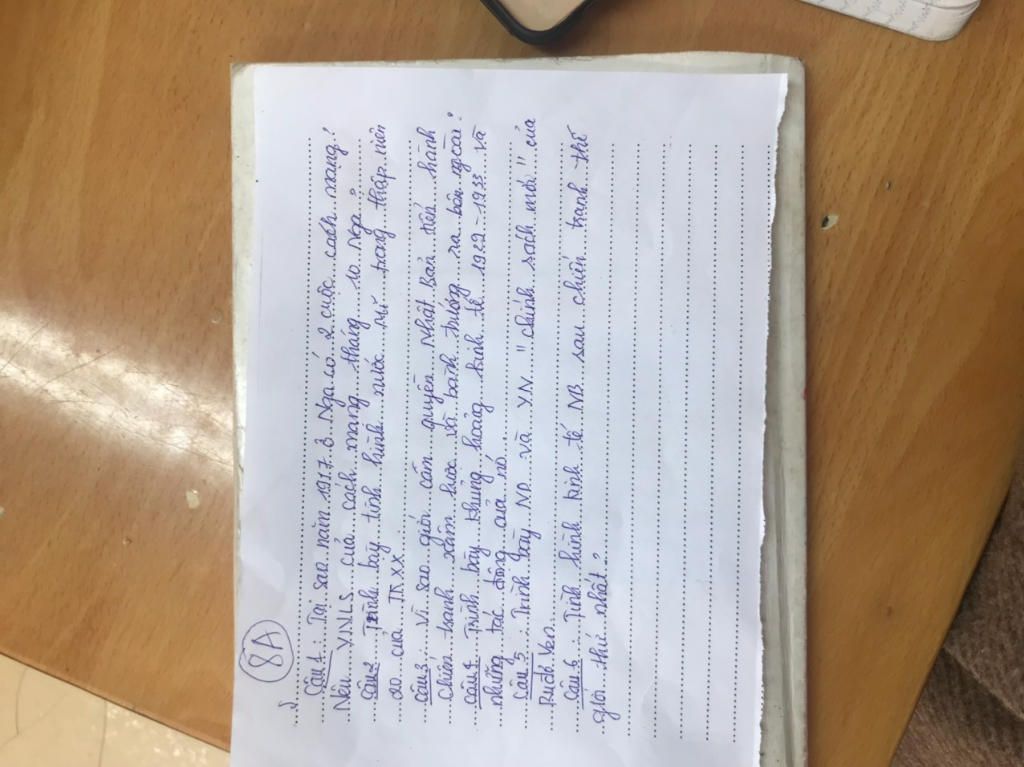 8A
Câu 1: Tại sao năm 1917 ở Nga có 2 cuộc cách mạng?
Nêu YNLS của cách mạng tháng 10 Nga?
Câu 2: Trình bày tình hình nước Mĩ trong thập niên
20 của TKXX
Câu 3: Vì sao giới cầm quyền Nhật Bản tiến hành
chiến tranh xâm lược và bành trướng ra bên ngoài?
Câu 4: Trình bày khủng hoảng kinh tế 1929-1933 và
những tác động của nó.
Câu 5: Trình bày ND và YN "chính sách mới" của
Rudơ Ven
Câu 6: Tình hình kinh tế NB sau chiến tranh thế
giới thứ nhất?